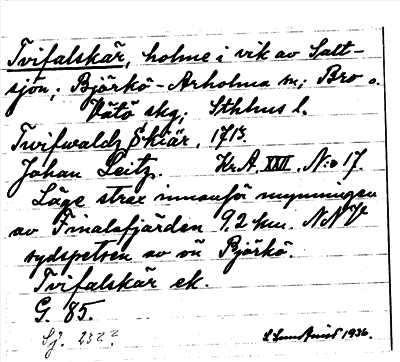 Tvifalskär, holme i vik av Salt-
sjön; Björkö-Arholma sn; Bro o.
Vätö skg; Sthlms l.
Twifwaldz Skiär, 1713.
Johan Leitz. Kr.A. XXII, N:o 17.
Läge strax innanför mynningen
av Finalafjärden 9,2 km. NNV
sydspetsen av ön Björkö.
Tvifalskär ek.
G. 85.
Sj. 232?
1936.